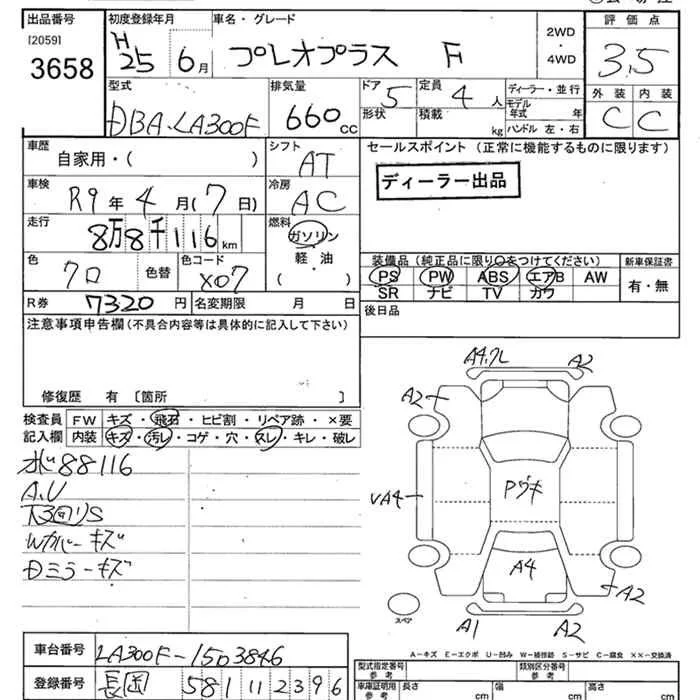 出品番号 初度登録年月 車名・グレード 2WD・4WD 評価点
[2059]
3658
H25 6月 プレオプラス F 3.5
型式 排気量 ドア 5 定員 4人 ディーラー・並行 外装 内装
DBA-LA300F 660cc 形状 積載 kg モデル年式 年 C C
ハンドル 左・右
車歴 シフト セールスポイント (正常に機能するものに限ります)
自家用・( ) AT
ディーラー出品
車検 冷房
R9年4月(7日) AC
走行 燃料
8万8千116km ガソリン
軽・油
( )
色 色替 色コード
クロ X07
装備品 (純正品に限り○をつけてください) 新車保証書
PS PW ABS エアB AW 有・無
SR ナビ TV カワ
R券 7320円 名変期限 月 日 後日品
注意事項申告欄 (不具合内容等は具体的に記入して下さい)
修復歴 有 [箇所 ]
検査員 FW キズ・飛石・ヒビ割・リペア跡・×要
記入欄 内装 キズ・汚レ・コゲ・穴・スレ・キレ・破レ
水心88116
A.U
下回りS
Wカバーキズ
Dミラーキズ
A4.クレ A2
A2
Pヅキ
VA4
A4
A2
スペア
A1 A2
A-キズ E-エクボ U-凹み W-補修跡 S-サビ C-腐食 ××-交換済
車台番号 LA300F-1503846
登録番号 長岡 581 112396
型式指定番号 参考 類別区分番号 参考
車庫証明用 参考 長さ cm 幅 cm 高さ cm